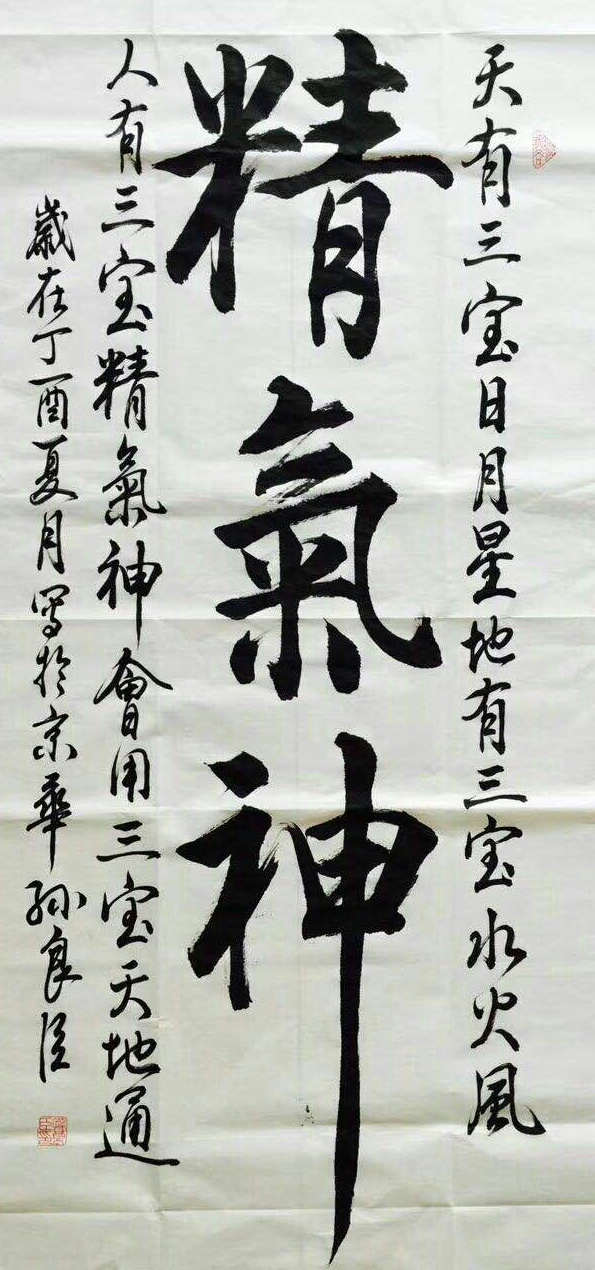 天有三宝日月星地有三宝水火風
精氣神
人有三宝精氣神會用三宝天地通
歲在丁酉夏月写於京華孙良臣